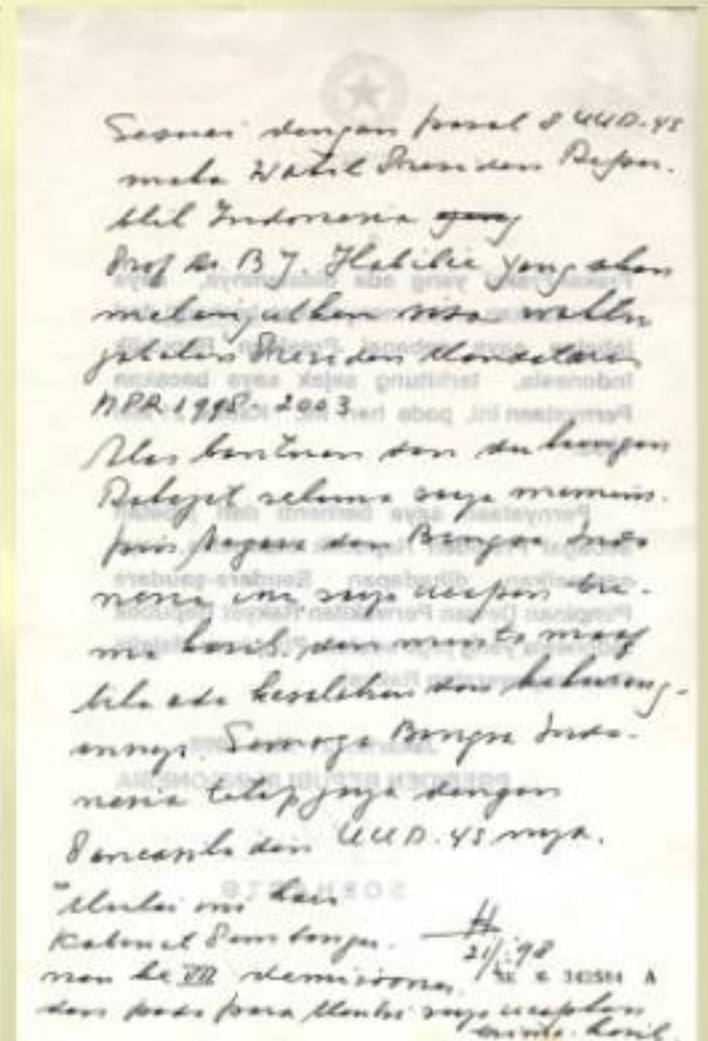 Sesuai dengan pasal 8 UUD-45
maka Wakil Presiden Repu-
blik Indonesia yang
Prof Dr BJ. Habibie yang akan
melanjutkan sisa waktu
jabatan Presiden Mandataris
MPR 1998-2003
Atas bantuan dan dukungan
Rakyat selama saya memim-
pin Negara dan Bangsa Indo
nesia ini, saya ucapkan tri-
ma kasih, dan minta maaf
bila ada kesalahan dan kekurang-
annya. Semoga Bangsa Indo-
nesia tetap jaya dengan
Pancasila dan UUD-45 nya.
Mulai ini hari
Kabinet Pembangu-
nan ke VII demisioner
dan pada para Menteri saya ucapkan
terima kasih.
21/5 98
SK 342504 A